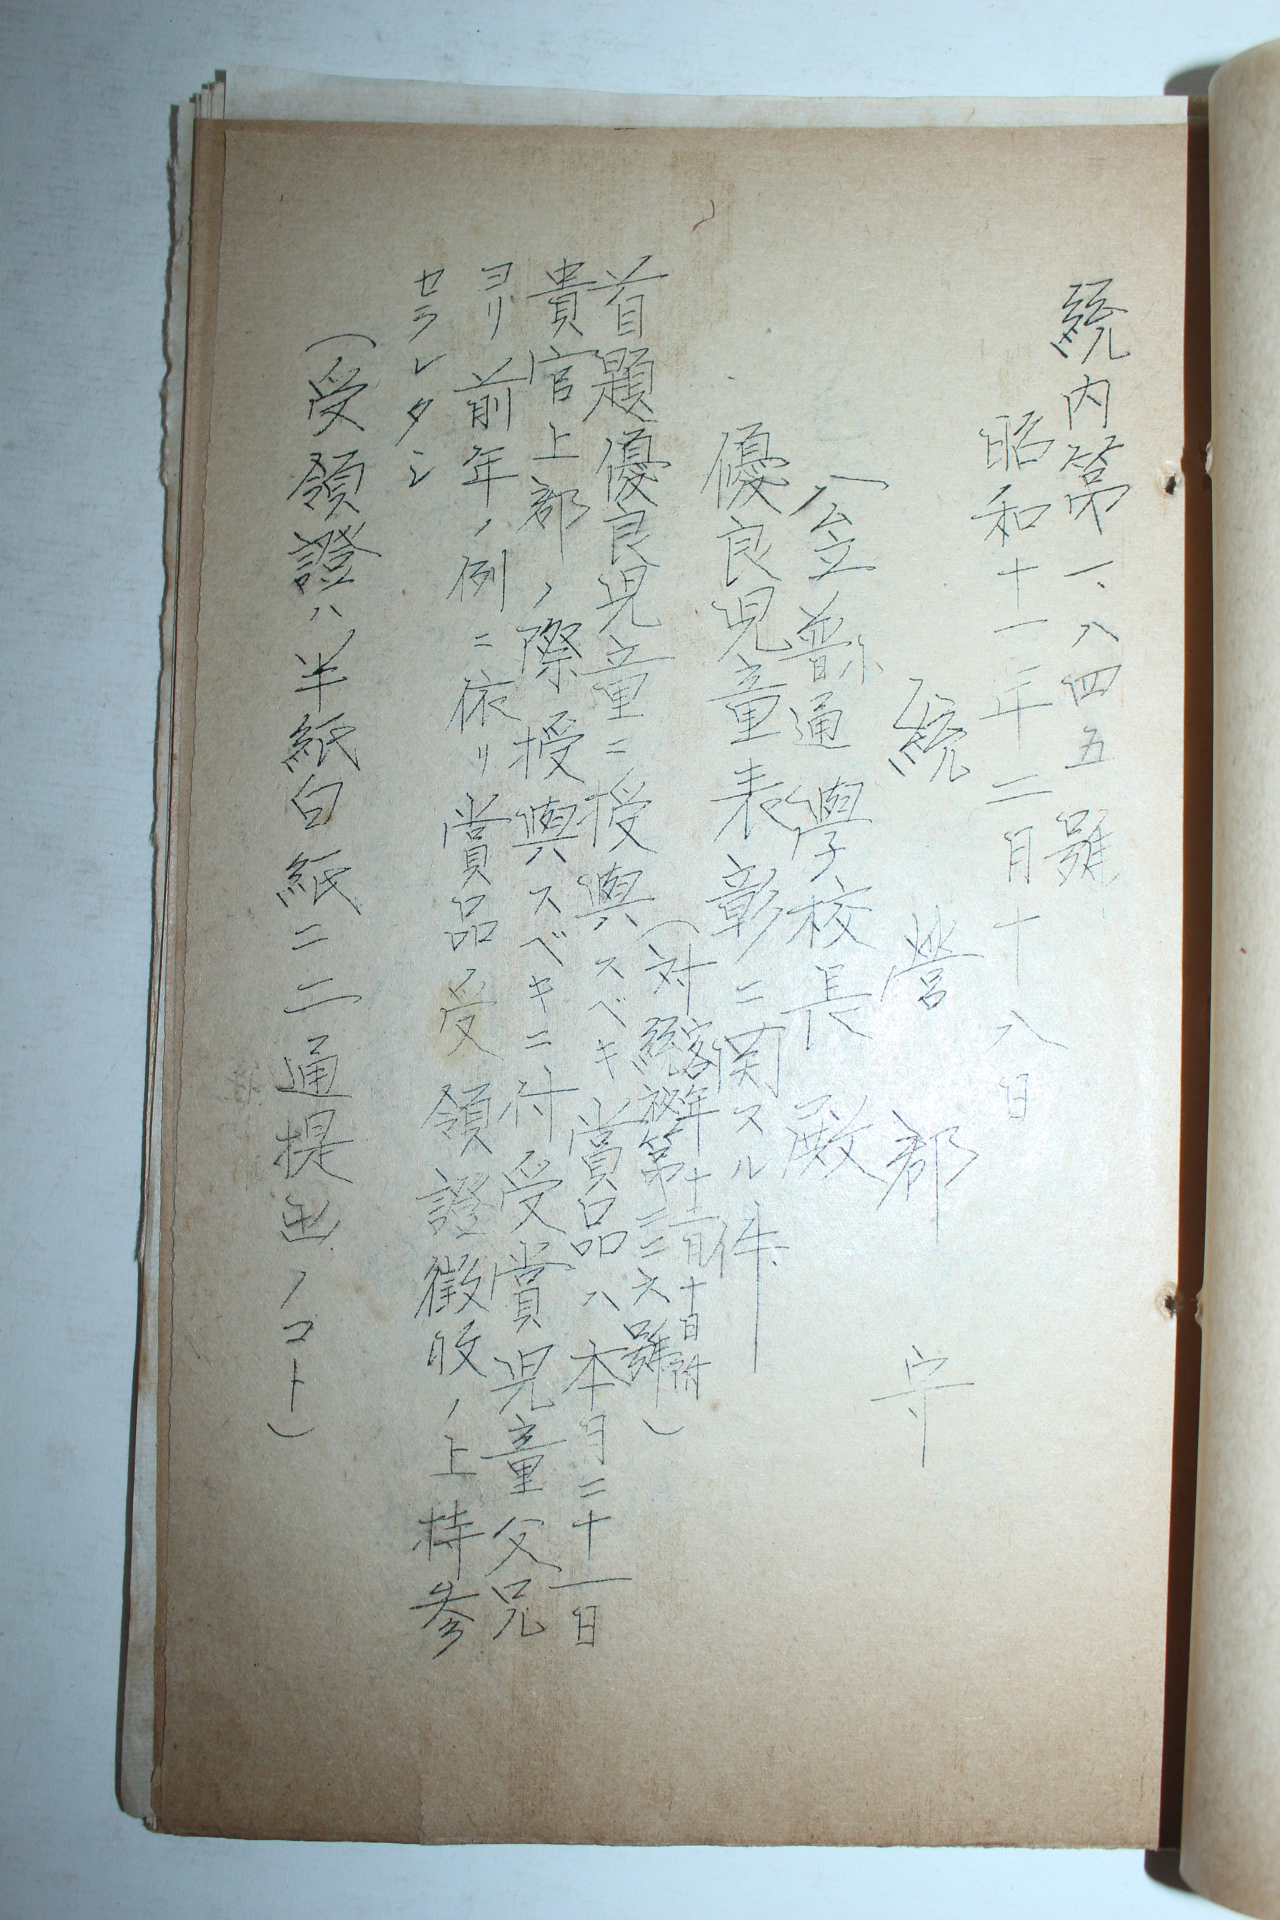 統内第一、八四五號
昭和十一年二月十八日
統營郡守
公立普通學校長殿
優良児童表彰ニ関スル件
(対客年十二月十日附
統秘第二三六號)
首題優良児童ニ授與スベキ賞品ハ本月二十一日
貴官上部ノ際授與スベキニ付受賞児童父兄
ヨリ前年ノ例ニ依リ賞品受領證徴收ノ上持参
セラレタシ
(受領證ハ半紙白紙ニ二通提出ノコト)